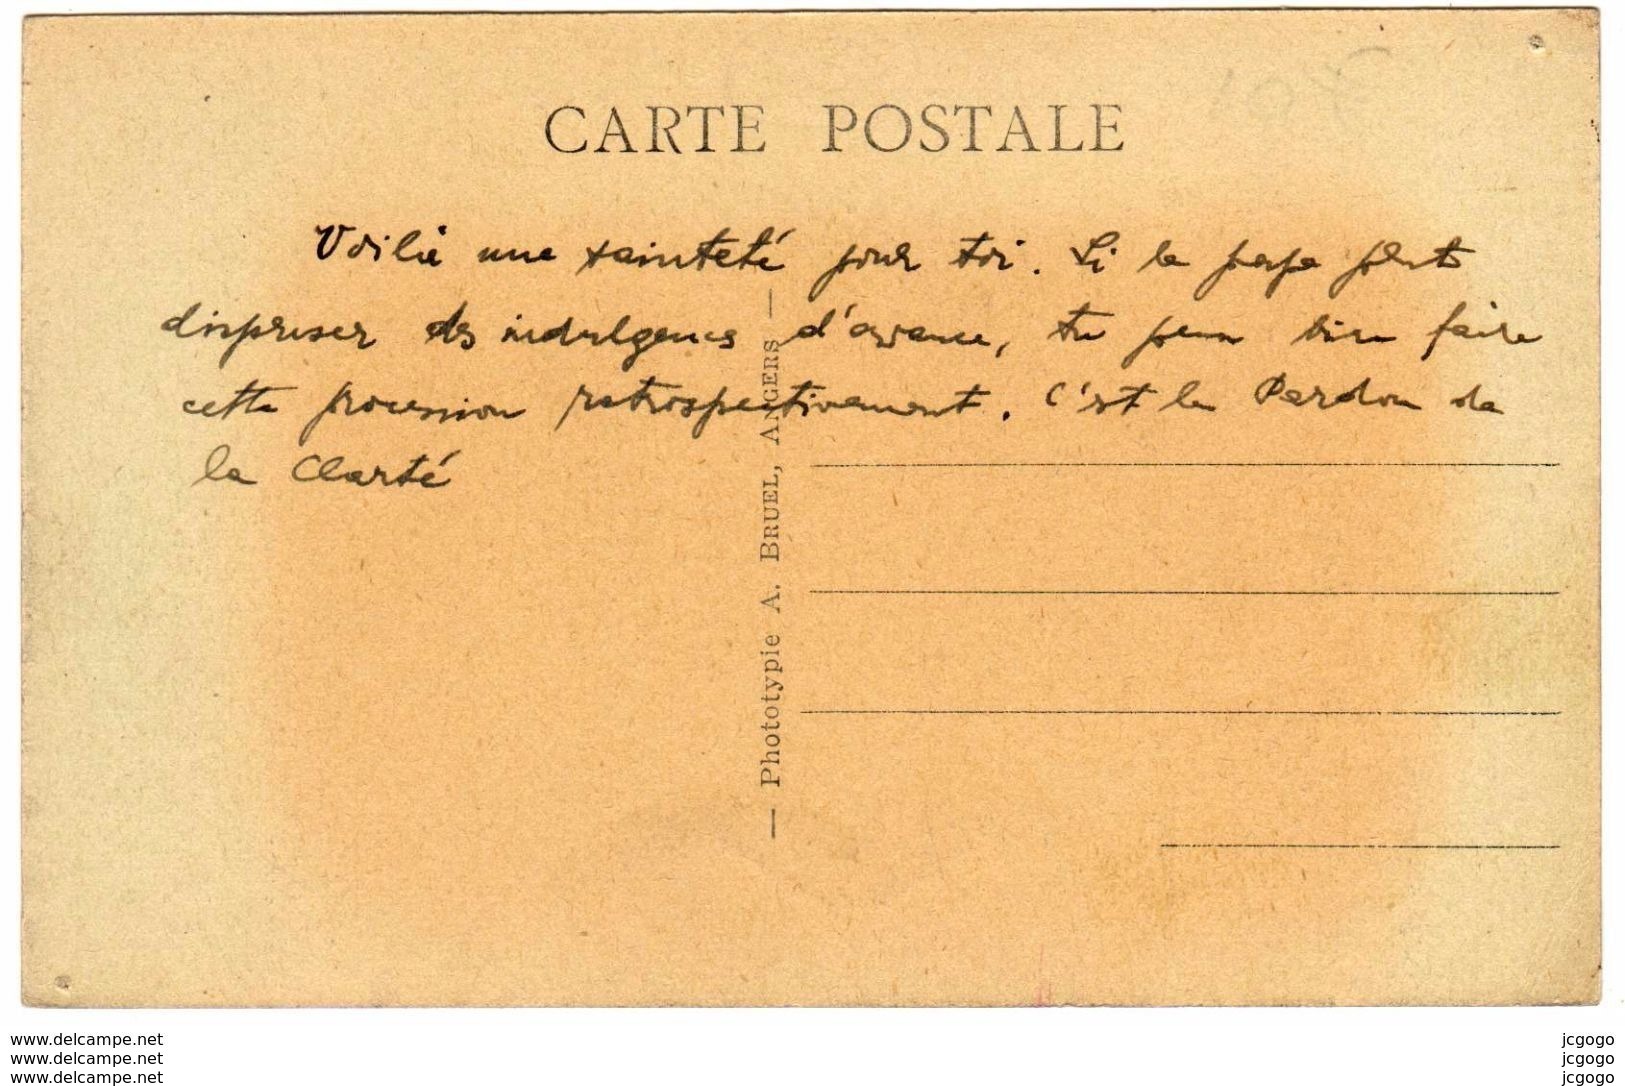 CARTE POSTALE
Voilà une sainteté pour toi. Si le pape peut
dispenser des indulgences d'avance, tu peux bien faire
cette procession retrospectivement. C'est le Pardon de
la Clarté
— Phototypie A. BRUEL, ANGERS —
www.delcampe.net
www.delcampe.net
www.delcampe.net
jcgogo
jcgogo
jcgogo